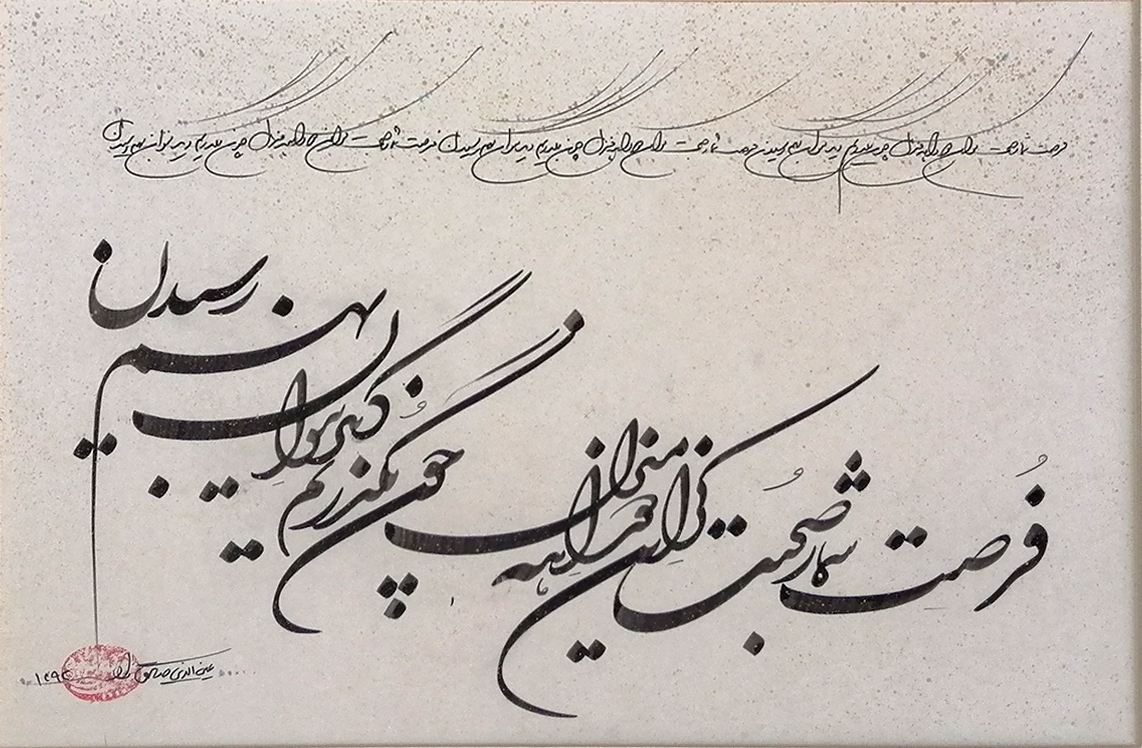 فرصت شمار صحبت کز این دوراهه منزل چون بگذریم دیگر نتوان بهم رسیدن فرصت شمار صحبت کز این دوراهه منزل چون بگذریم دیگر نتوان بهم رسیدن فرصت شمار صحبت کز این دوراهه منزل چون بگذریم دیگر نتوان بهم رسیدن
فُرصت شمار صُحبت کز این دوراهه منزل
چون بگذریم دیگر نتوان بهم رسیدن
عین الدین